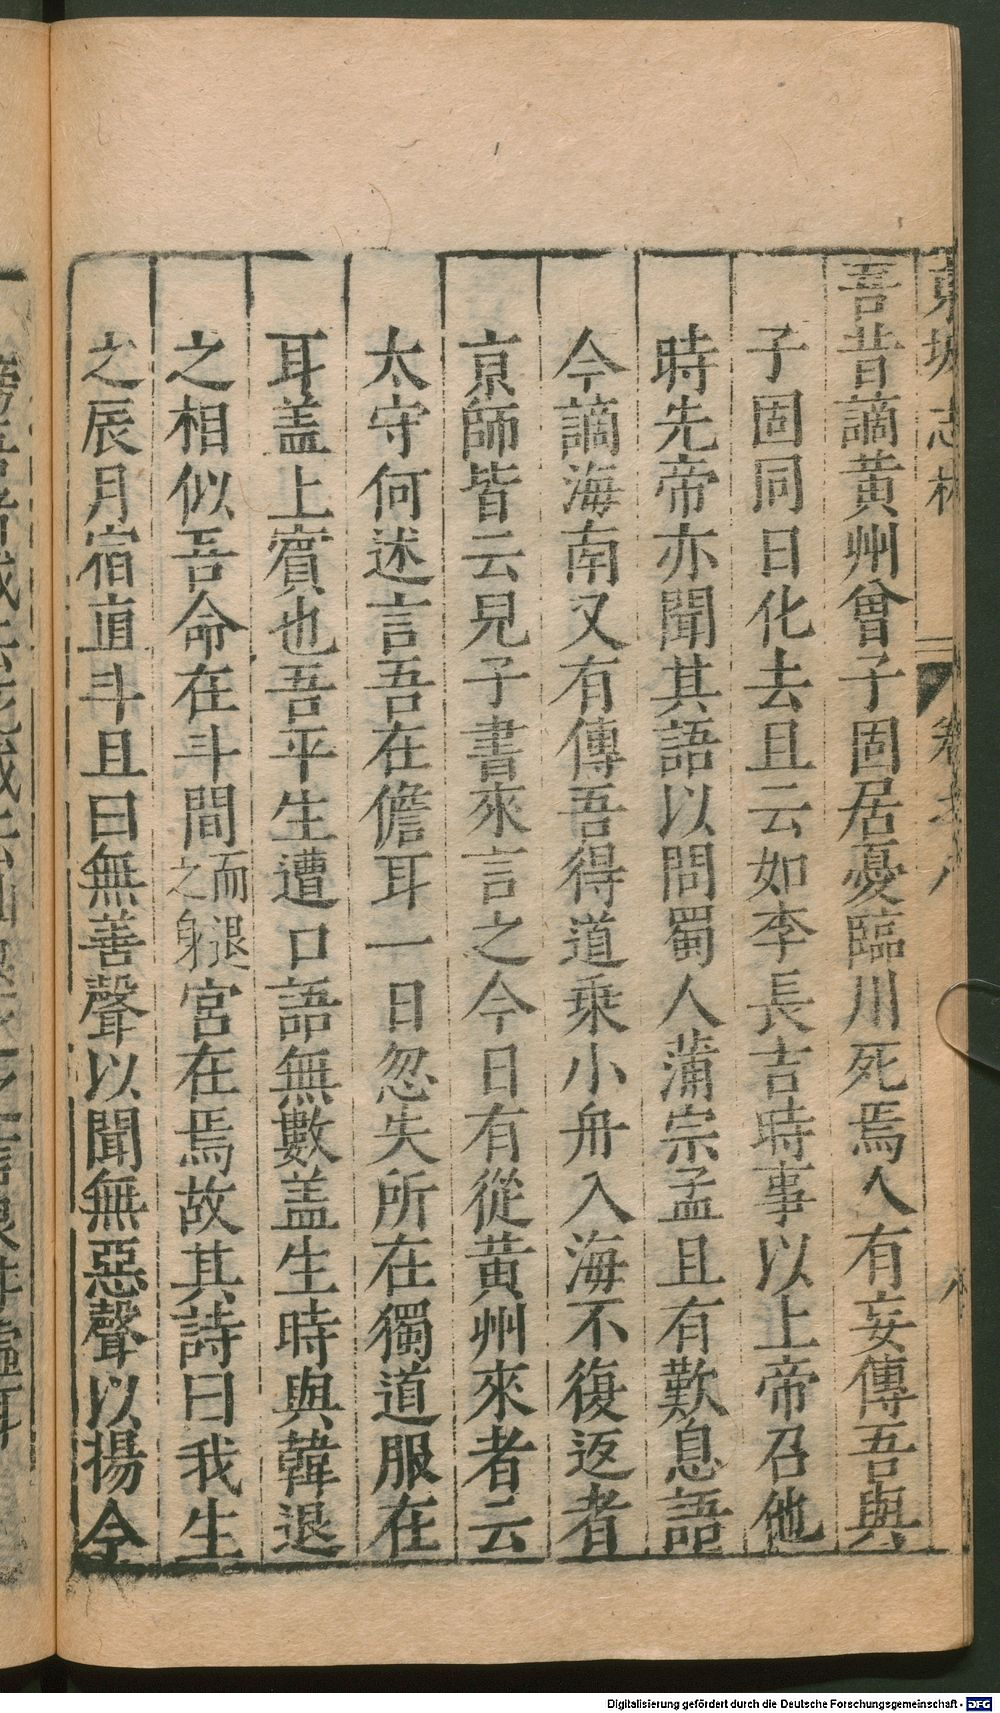 東坡志林
卷
八
吾昔謫黃州曾子固居憂臨川死焉人有妄傳吾與
子固同日化去且云如李長吉時事以上帝召他
時先帝亦聞其語以問蜀人蒲宗孟且有歎息語
今謫海南又有傳吾得道乘小舟入海不復返者
京師皆云見子書來言之今日有從黃州來者云
太守何述言吾在儋耳一日忽失所在獨道服在
耳盖上賓也吾平生遭口語無數盖生時與韓退
之相似吾命在斗間而退之身宮在焉故其詩曰我生
之辰月宿直斗且曰無善聲以聞無惡聲以揚今
Digitalisierung gefördert durch die Deutsche Forschungsgemeinschaft - DFG